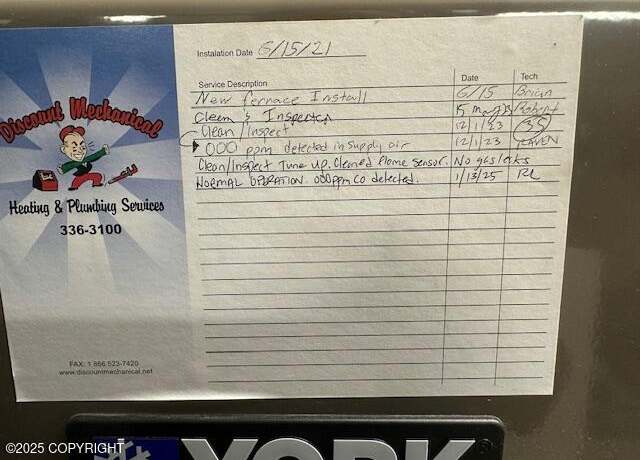 Instalation Date 6/15/21
Service Description Date Tech
New fernace Install 6/15 Brian
Cleem & Inspected 15 Robert
Clean/Inspect 12/1/23 35
000 ppm detected in supply air 12/1/23 RAVEN
Clean/Inspect Tune up. Cleaned Flame Sensor. No gas leaks
NORMAL OPERATION. 000ppm CO detected. 1/13/25 RL
Discount Mechanical
Heating & Plumbing Services
336-3100
FAX: 1 866 523-7420
www.discountmechanical.net
YORK
©2025 COPYRIGHT